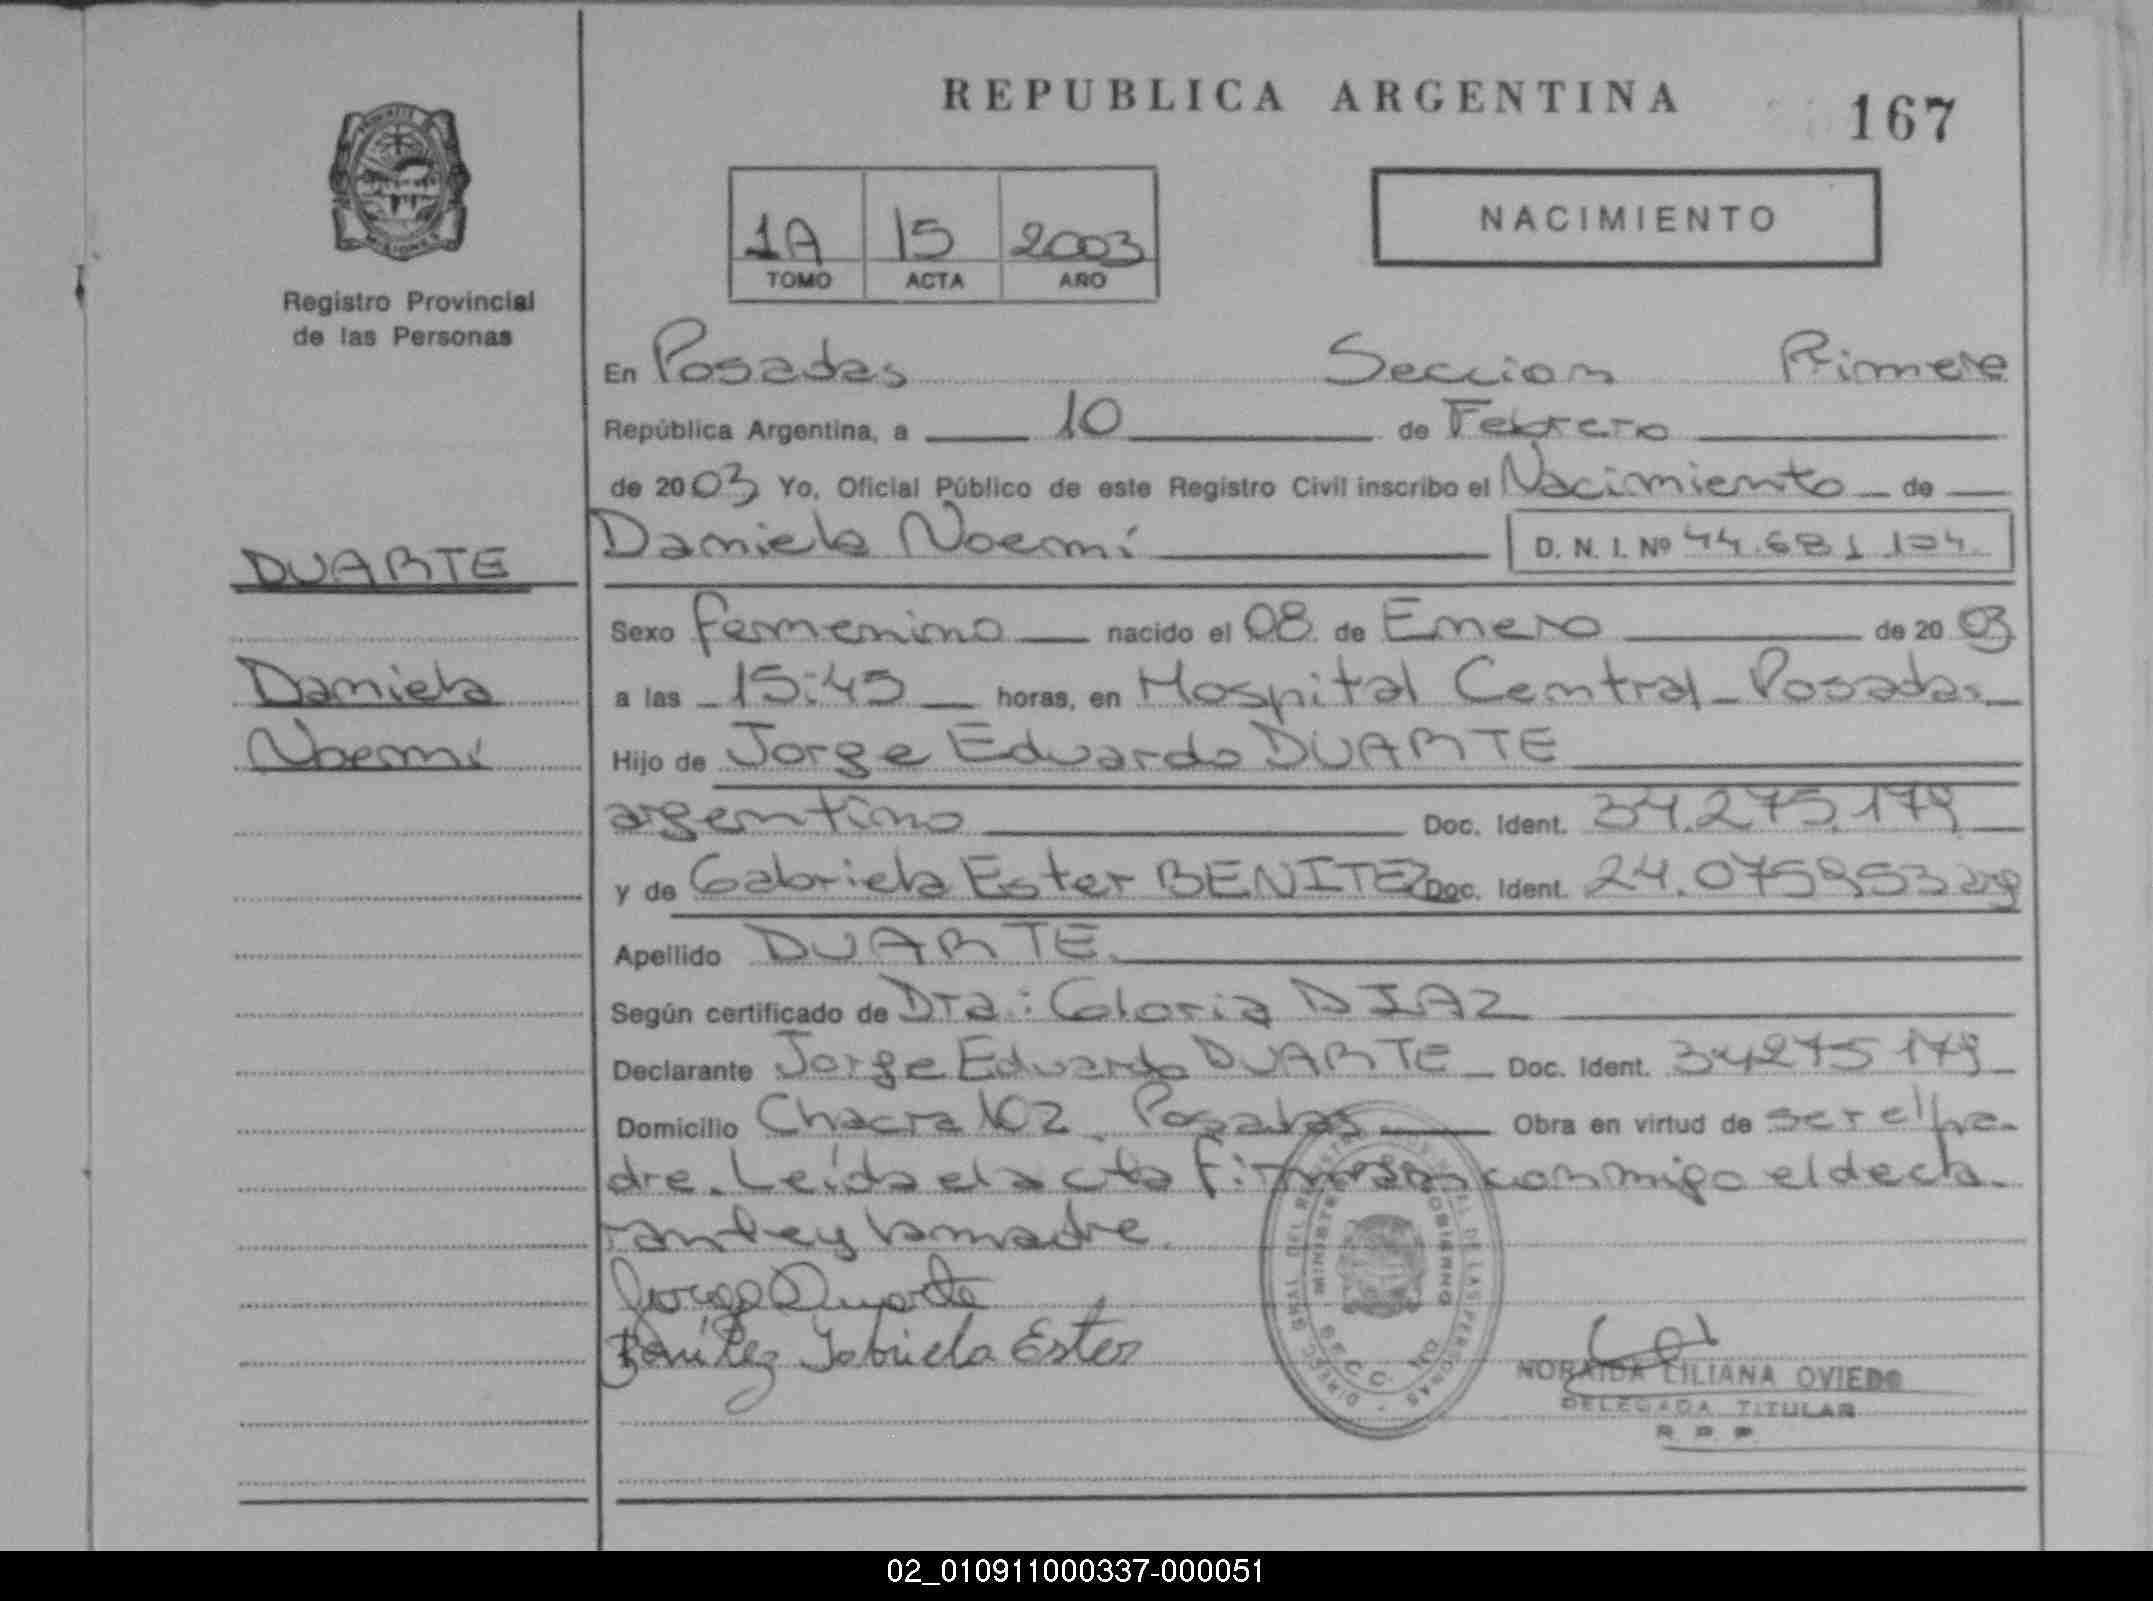 REPUBLICA ARGENTINA
167
Registro Provincial
de las Personas
1A 15 2003
TOMO ACTA AÑO
NACIMIENTO
En Posadas Seccion Primera
República Argentina, a 10 de Febrero
de 2003 Yo, Oficial Público de este Registro Civil inscribo el Nacimiento de
DUARTE
Daniela Noemí D. N. I. Nº 44.681.104
Sexo femenino nacido el 08 de Enero de 2003
Daniela
a las 15:45 horas, en Hospital Central - Posadas
Noemí
Hijo de Jorge Eduardo DUARTE
argentino Doc. Ident. 34.275.179
y de Gabriela Ester BENITEZ Doc. Ident. 24.075953 arg
Apellido DUARTE
Según certificado de Dra: Gloria DIAZ
Declarante Jorge Eduardo DUARTE Doc. Ident. 34275179
Domicilio Chacra 102 Posadas Obra en virtud de ser el pa-
dre. Leída el acta firman conmigo el decla-
rante y la madre.
Jorge Duarte
Benítez Gabriela Ester
NORAIDA LILIANA OVIEDO
DELEGADA TITULAR
R P P
02_010911000337-000051